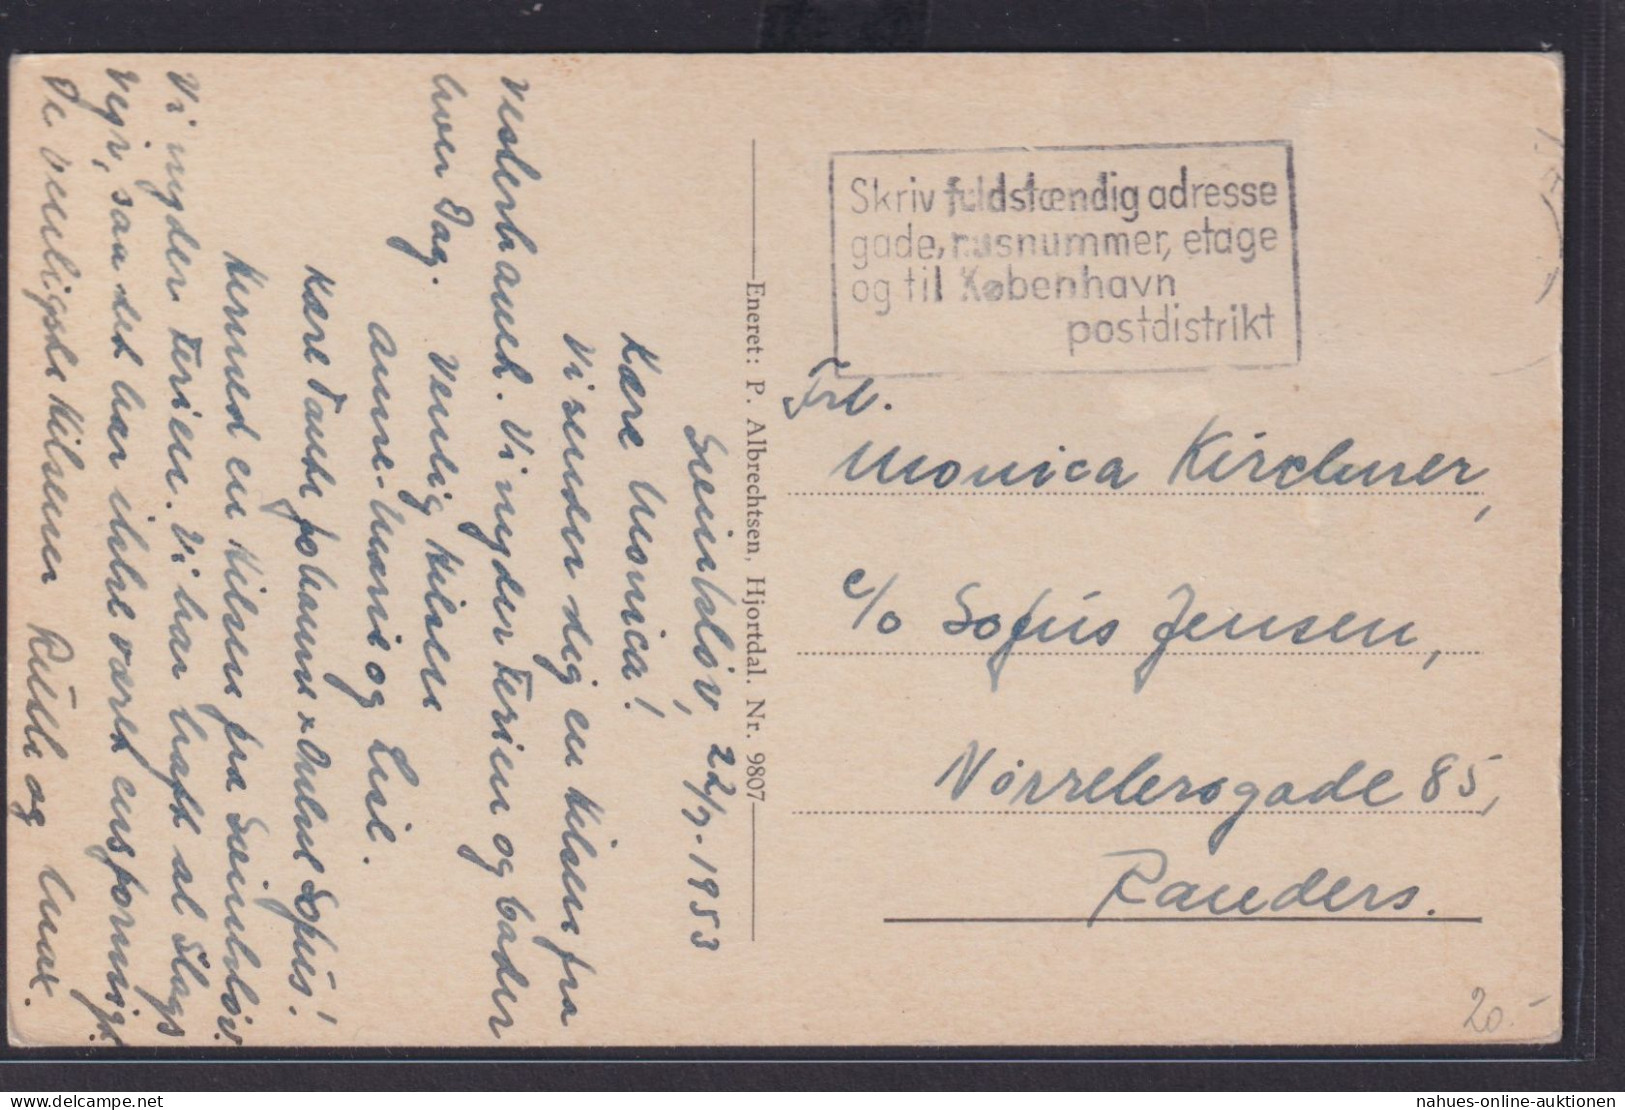 Skriv fuldstændig adresse
gade, husnummer, etage
og til København
postdistrikt
Frk.
Monica Kirchner,
c/o Sofus Jensen,
Nørrebrogade 85,
Randers.
Eneret: P. Albrechtsen, Hjortdal. Nr. 9807
22/7. 1953
Kære Monica!
Vi sender dig en Hilsen fra
Vesterhavet. Vi nyder Ferien og bader
hver Dag. Venlig Hilsen
Anne-Marie og
Kære Tante Johanne & Onkel Sofus!
Hermed en Hilsen fra
Vi nyder Ferien. Vi har haft al Slags
Vejr, saa det har ikke været ensformigt.
De venligste Hilsener og
20.-
nahues-online-auktionen
delcampe.net